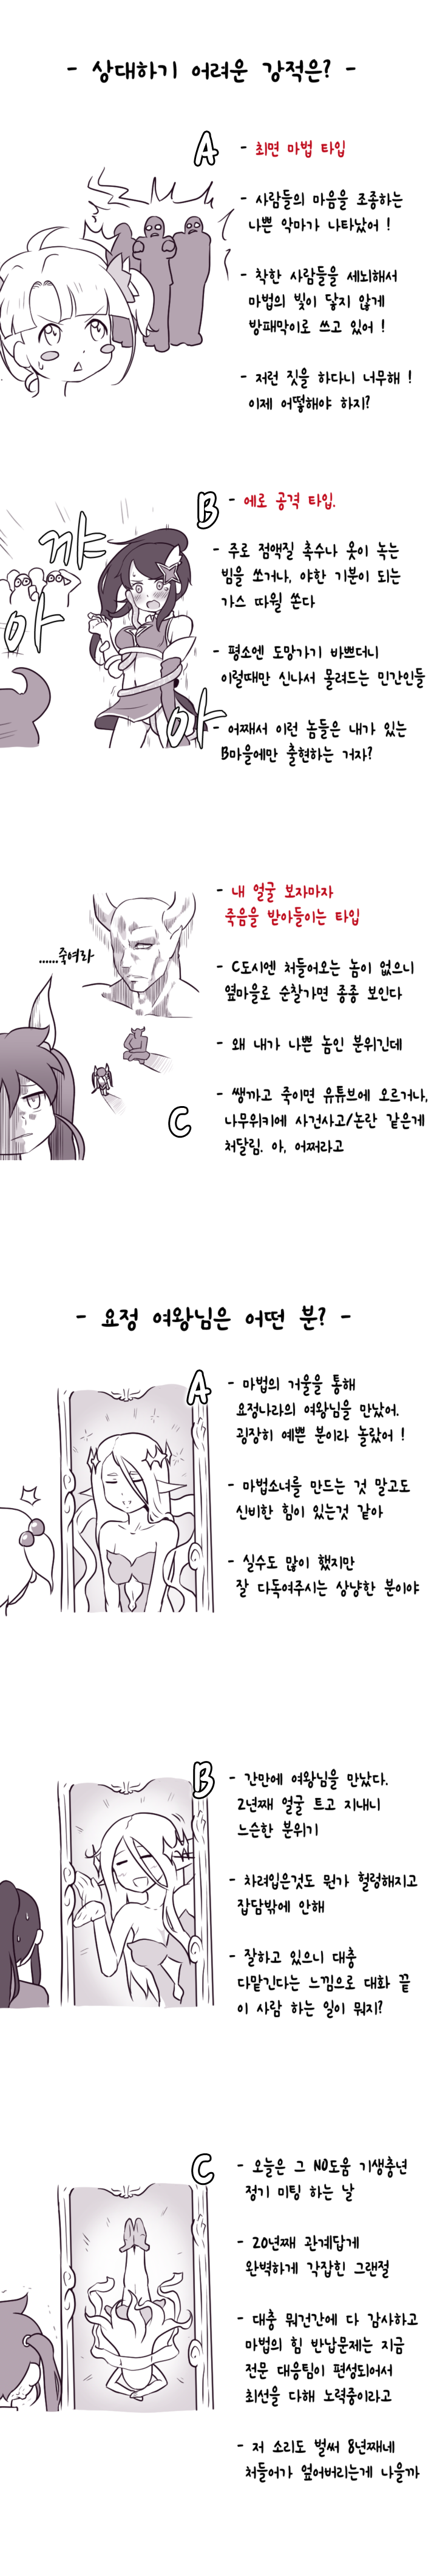 - 상대하기 어려운 강적은? -
A
- 최면 마법 타입
- 사람들의 마음을 조종하는
나쁜 악마가 나타났어 !
- 착한 사람들을 세뇌해서
마법의 빛이 닿지 않게
방패막이로 쓰고 있어 !
- 저런 짓을 하다니 너무해 !
이제 어떻해야 하지?
B
- 에로 공격 타입.
꺄
아
아
- 주로 점액질 촉수나 옷이 녹는
빔을 쏘거나, 야한 기분이 되는
가스 따윌 쏜다
- 평소엔 도망가기 바쁘더니
이럴때만 신나서 몰려드는 민간인들
- 어째서 이런 놈들은 내가 있는
B마을에만 출현하는 거자?
- 내 얼굴 보자마자
죽음을 받아들이는 타입
......죽여라
- C도시엔 처들어오는 놈이 없으니
옆마을로 순찰가면 종종 보인다
- 왜 내가 나쁜 놈인 분위긴데
- 쌩까고 죽이면 유튜브에 오르거나,
나무위키에 사건사고/논란 같은게
처달림. 아, 어쩌라고
C
- 요정 여왕님은 어떤 분? -
A
- 마법의 거울을 통해
요정나라의 여왕님을 만났어.
굉장히 예쁜 분이라 놀랐어 !
- 마법소녀를 만드는 것 말고도
신비한 힘이 있는것 같아
- 실수도 많이 했지만
잘 다독여주시는 상냥한 분이야
B
- 간만에 여왕님을 만났다.
2년째 얼굴 트고 지내니
느슨한 분위기
- 차려입은것도 뭔가 헐렁해지고
잡담밖에 안해
- 잘하고 있으니 대충
다맡긴다는 느낌으로 대화 끝
이 사람 하는 일이 뭐지?
C
- 오늘은 그 NO도움 기생충년
정기 미팅 하는 날
- 20년째 관계답게
완벽하게 각잡힌 그랜절
- 대충 뭐건간에 다 감사하고
마법의 힘 반납문제는 지금
전문 대응팀이 편성되어서
최선을 다해 노력중이라고
- 저 소리도 벌써 8년째네
처들어가 엎어버리는게 나을까